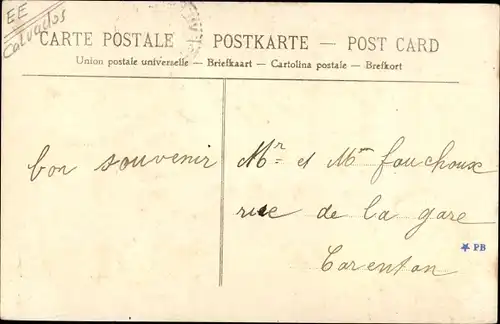 EE
Calvados
CARTE POSTALE — POSTKARTE — POST CARD
Union postale universelle — Briefkaart — Cartolina postale — Brefkort
bon souvenir
Mr et Mme Fauchoux
rue de la gare
Carentan
★ PB